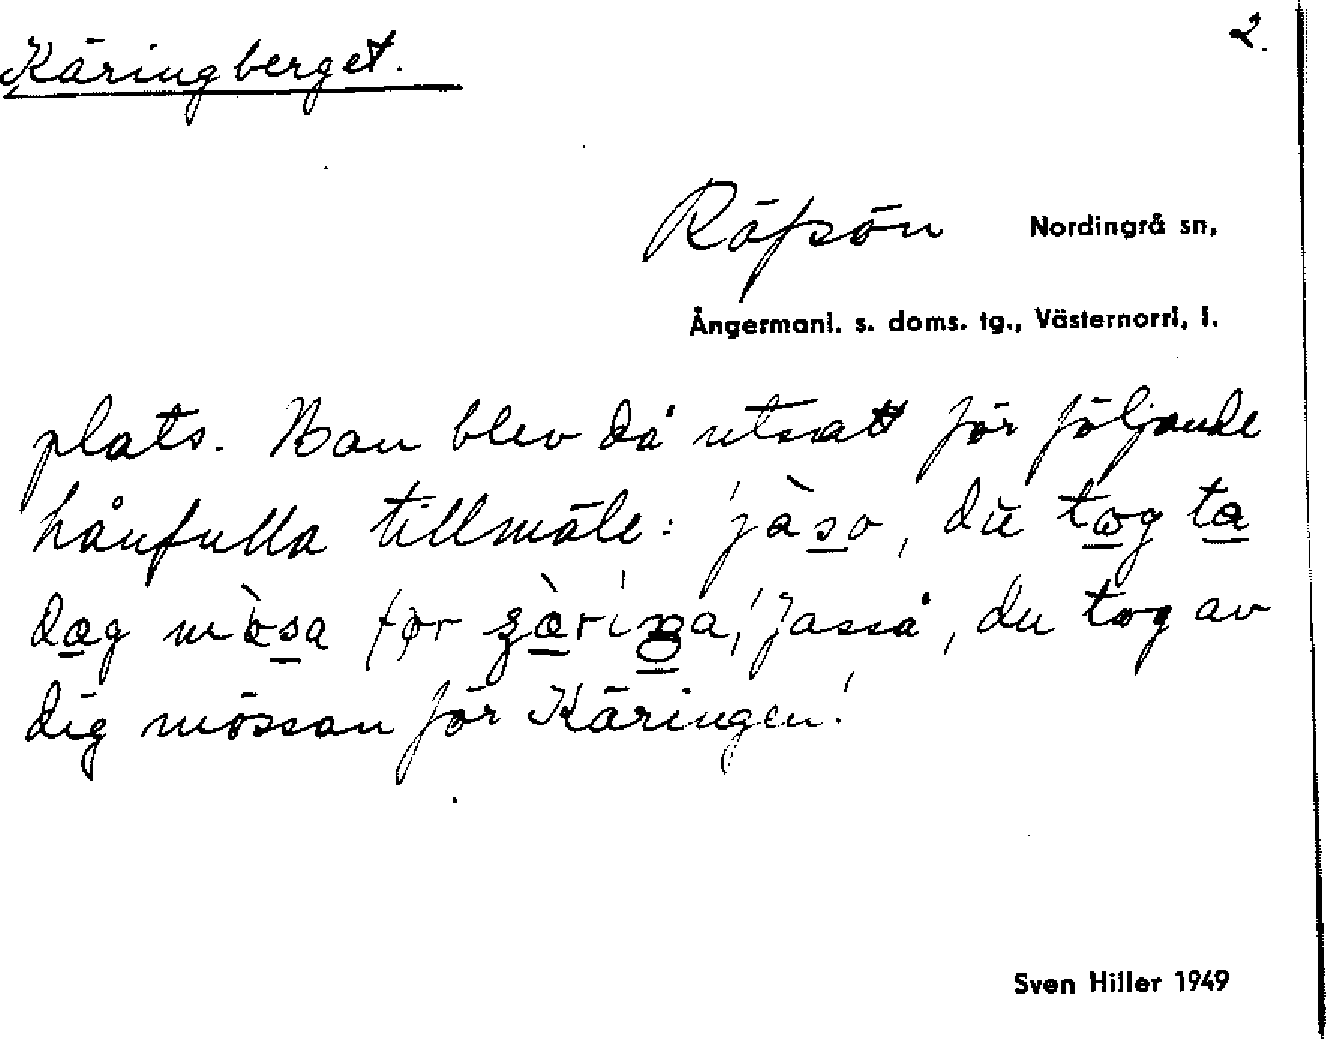 Käringberget.
2.
Räfsön Nordingrå sn,
Ångermanl. s. doms. tg., Västernorrl, l.
plats. Man blev då utsatt för följande
hånfulla tillmäle: jàso, du tog ta
dæg mòsa før
Jasså, du tog av
dig mössan för Käringen!
Sven Hiller 1949